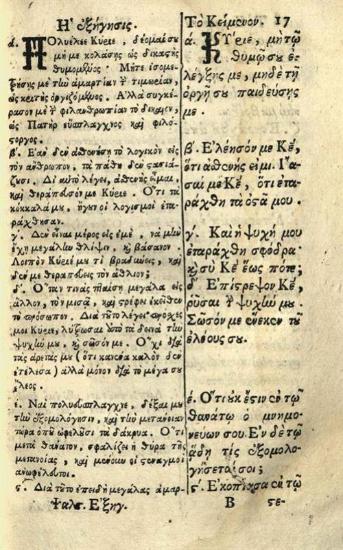 Ἡ ἐξήγησις.
ά. Πολυέλεε Κύριε, δέομαί σου
μή με κολάσῃς ὡς δικαστὴς
θυμομένος. Μήτε ἰσομε-
τρήσῃς μὲ τὴν ἁμαρτίαν τὴν τιμωρίαν,
ὡς κριτὴς ὀργιζόμενος. Ἀλλὰ συγκέ-
ρασον μὲ τὴν φιλανθρωπίαν τὸ δίκαιον,
ὡς Πατὴρ εὔσπλαγχνος καὶ φιλό-
στοργος.
β. Ἐὰν δὲν ἀσθενήσῃ τὸ λογικὸν εἰς
τὸν ἄνθρωπον, τὰ πάθη δὲν στασιά-
ζουσι. Δι' αὐτὸ λέγει, ἀσθενὴς εἶμαι,
καὶ θεράπευσόν με Κύριε. Ὅτι τὰ
κόκκαλά μου, ἤγουν οἱ λογισμοὶ ἐπα-
ράχθησαν.
γ. Δὲν εἶναι μέρος εἰς ἐμὲ, νὰ μὴν
ἔχῃ μεγάλην θλίψιν, καὶ βάσανον.
Λοιπὸν Κύριέ μου τί βραδύνεις, καὶ
δέν με θεραπεύεις τὸν ἄθλιον;
δ. Ὅταν τινὰς πταίσῃ μεγάλα εἰς
ἄλλον, τὸν μισᾷ, καὶ στρέφει ἐκεῖθεν
τὸ πρόσωπον. Διὰ τοῦτο λέγει· ἐπίστρεψόν
μοι Κύριε, λύτρωσαι ἀπὸ τὰ δεινὰ τὴν
ψυχήν μου, καὶ σῶσόν με. Οὐχὶ διὰ
τὰς ἀρετάς μου (ὅτι κᾀνένα καλὸν δὲν
ἐτέλεσα) ἀλλὰ μόνον διὰ τὸ μέγα σου
ἔλεος.
έ. Ναὶ πολυεύσπλαγχνε, δέξαι μου
τὴν ἐξομολόγησιν, καὶ τὴν μετάνοιαν
τώρα ὁποῦ ὠφελοῦσι τὰ δάκρυα. Ὅτι
μετὰ θάνατον, σφαλίζει ἡ θύρα τῆς
μετανοίας, καὶ μένουσιν οἱ στεναγμοὶ
ἀνωφέλητοι.
ϛ. Διὰ τοῦτο ἐπειδὴ μεγάλας ἁμαρ-
Ψαλτ. Ἐξηγ.
Τὸ Κείμενον. 17
ά. Κύριε, μὴ τῷ
θυμῷ σου ἐ-
λέγξῃς με, μηδὲ τῇ
ὀργῇ σου παιδεύσῃς
με.
β. Ἐλέησόν με Κέ,
ὅτι ἀσθενής εἰμι. Ἴα-
σαί με Κέ, ὅτι ἐτα-
ράχθη τὰ ὀστᾶ μου.
γ. Καὶ ἡ ψυχή μου
ἐταράχθη σφόδρα·
καὶ σὺ Κέ ἕως πότε;
δ. Ἐπίστρεψον Κέ,
ῥῦσαι τὴν ψυχήν μου.
Σῶσόν με ἕνεκεν τοῦ
ἐλέους σου.
έ. Ὅτι οὐκ ἔστιν ἐν τῷ
θανάτῳ ὁ μνημο-
νεύων σου. Ἐν δὲ τῷ
ᾅδῃ τίς ἐξομολο-
γήσεταί σοι;
ϛ. Ἐκοπίασα ἐν τῷ
B στε-